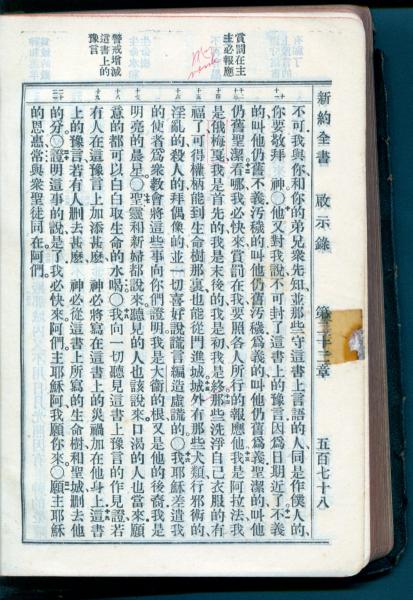 新約全書 啟示錄 第二十二章 五百七十八
賞罰在主
主必報應
警戒增減
這書上的
豫言
不可我與你和你的弟兄衆先知並那些守這書上言語的人同是作僕人的
你要敬拜 神○他又對我說不可封了這書上的豫言因爲日期近了不義
的叫他仍舊不義汚穢的叫他仍舊汚穢爲義的叫他仍舊爲義聖潔的叫他
仍舊聖潔看哪我必快來賞罰在我要照各人所行的報應他我是阿拉法我
是俄梅戛我是首先的我是末後的我是初我是終那些洗淨自己衣服的有
福了可得權柄能到生命樹那裏也能從門進城城外有那些犬類行邪術的
淫亂的殺人的拜偶像的並一切喜好說謊言編造虛謊的○我耶穌差遣我
的使者爲衆教會將這些事向你們證明我是大衞的根又是他的後裔我是
明亮的晨星○聖靈和新婦都說來聽見的人也該說來口渴的人也當來願
意的都可以白白取生命的水喝○我向一切聽見這書上豫言的作見證若
有人在這豫言上加添甚麽 神必將寫在這書上的災禍加在他身上這書
上的豫言若有人刪去甚麽 神必從這書上所寫的生命樹和聖城刪去他
的分○證明這事的說是了我必快來阿們主耶穌阿我願你來○願主耶穌
的恩惠常與衆聖徒同在阿們